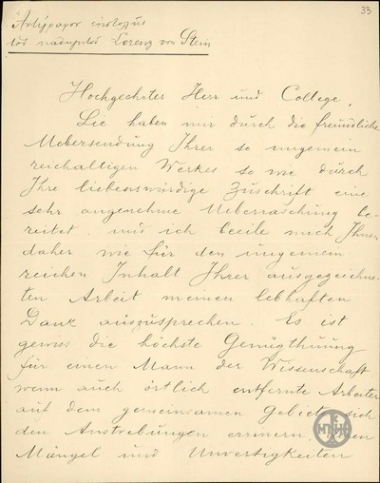 33
Ἀντίγραφον ἐπιστολῆς
τοῦ καθηγητοῦ Lorenz von Stein
Hochgeehrter Herr und College,
Sie haben mir durch die freundliche
Uebersendung Ihrer so ungemein
reichaltigen Werkes so wie durch
Ihre liebenswürdige Zuschrift eine
sehr angenehme Ueberraschung be-
reitet und ich beeile mich Ihnen
daher wie für den ungemein
reichen Inhalt Ihrer ausgezeichne-
ten Arbeit meinen lebhaften
Dank auszusprechen. Es ist
gewiss die höchste Genugthuung
für einen Mann der Wissenschaft
wenn auch örtlich entfernte Arbeiter
auf dem gemeinsamen Gebiete sich
den Anstrebungen erinnern,
Mängel und Unfertigkeiten